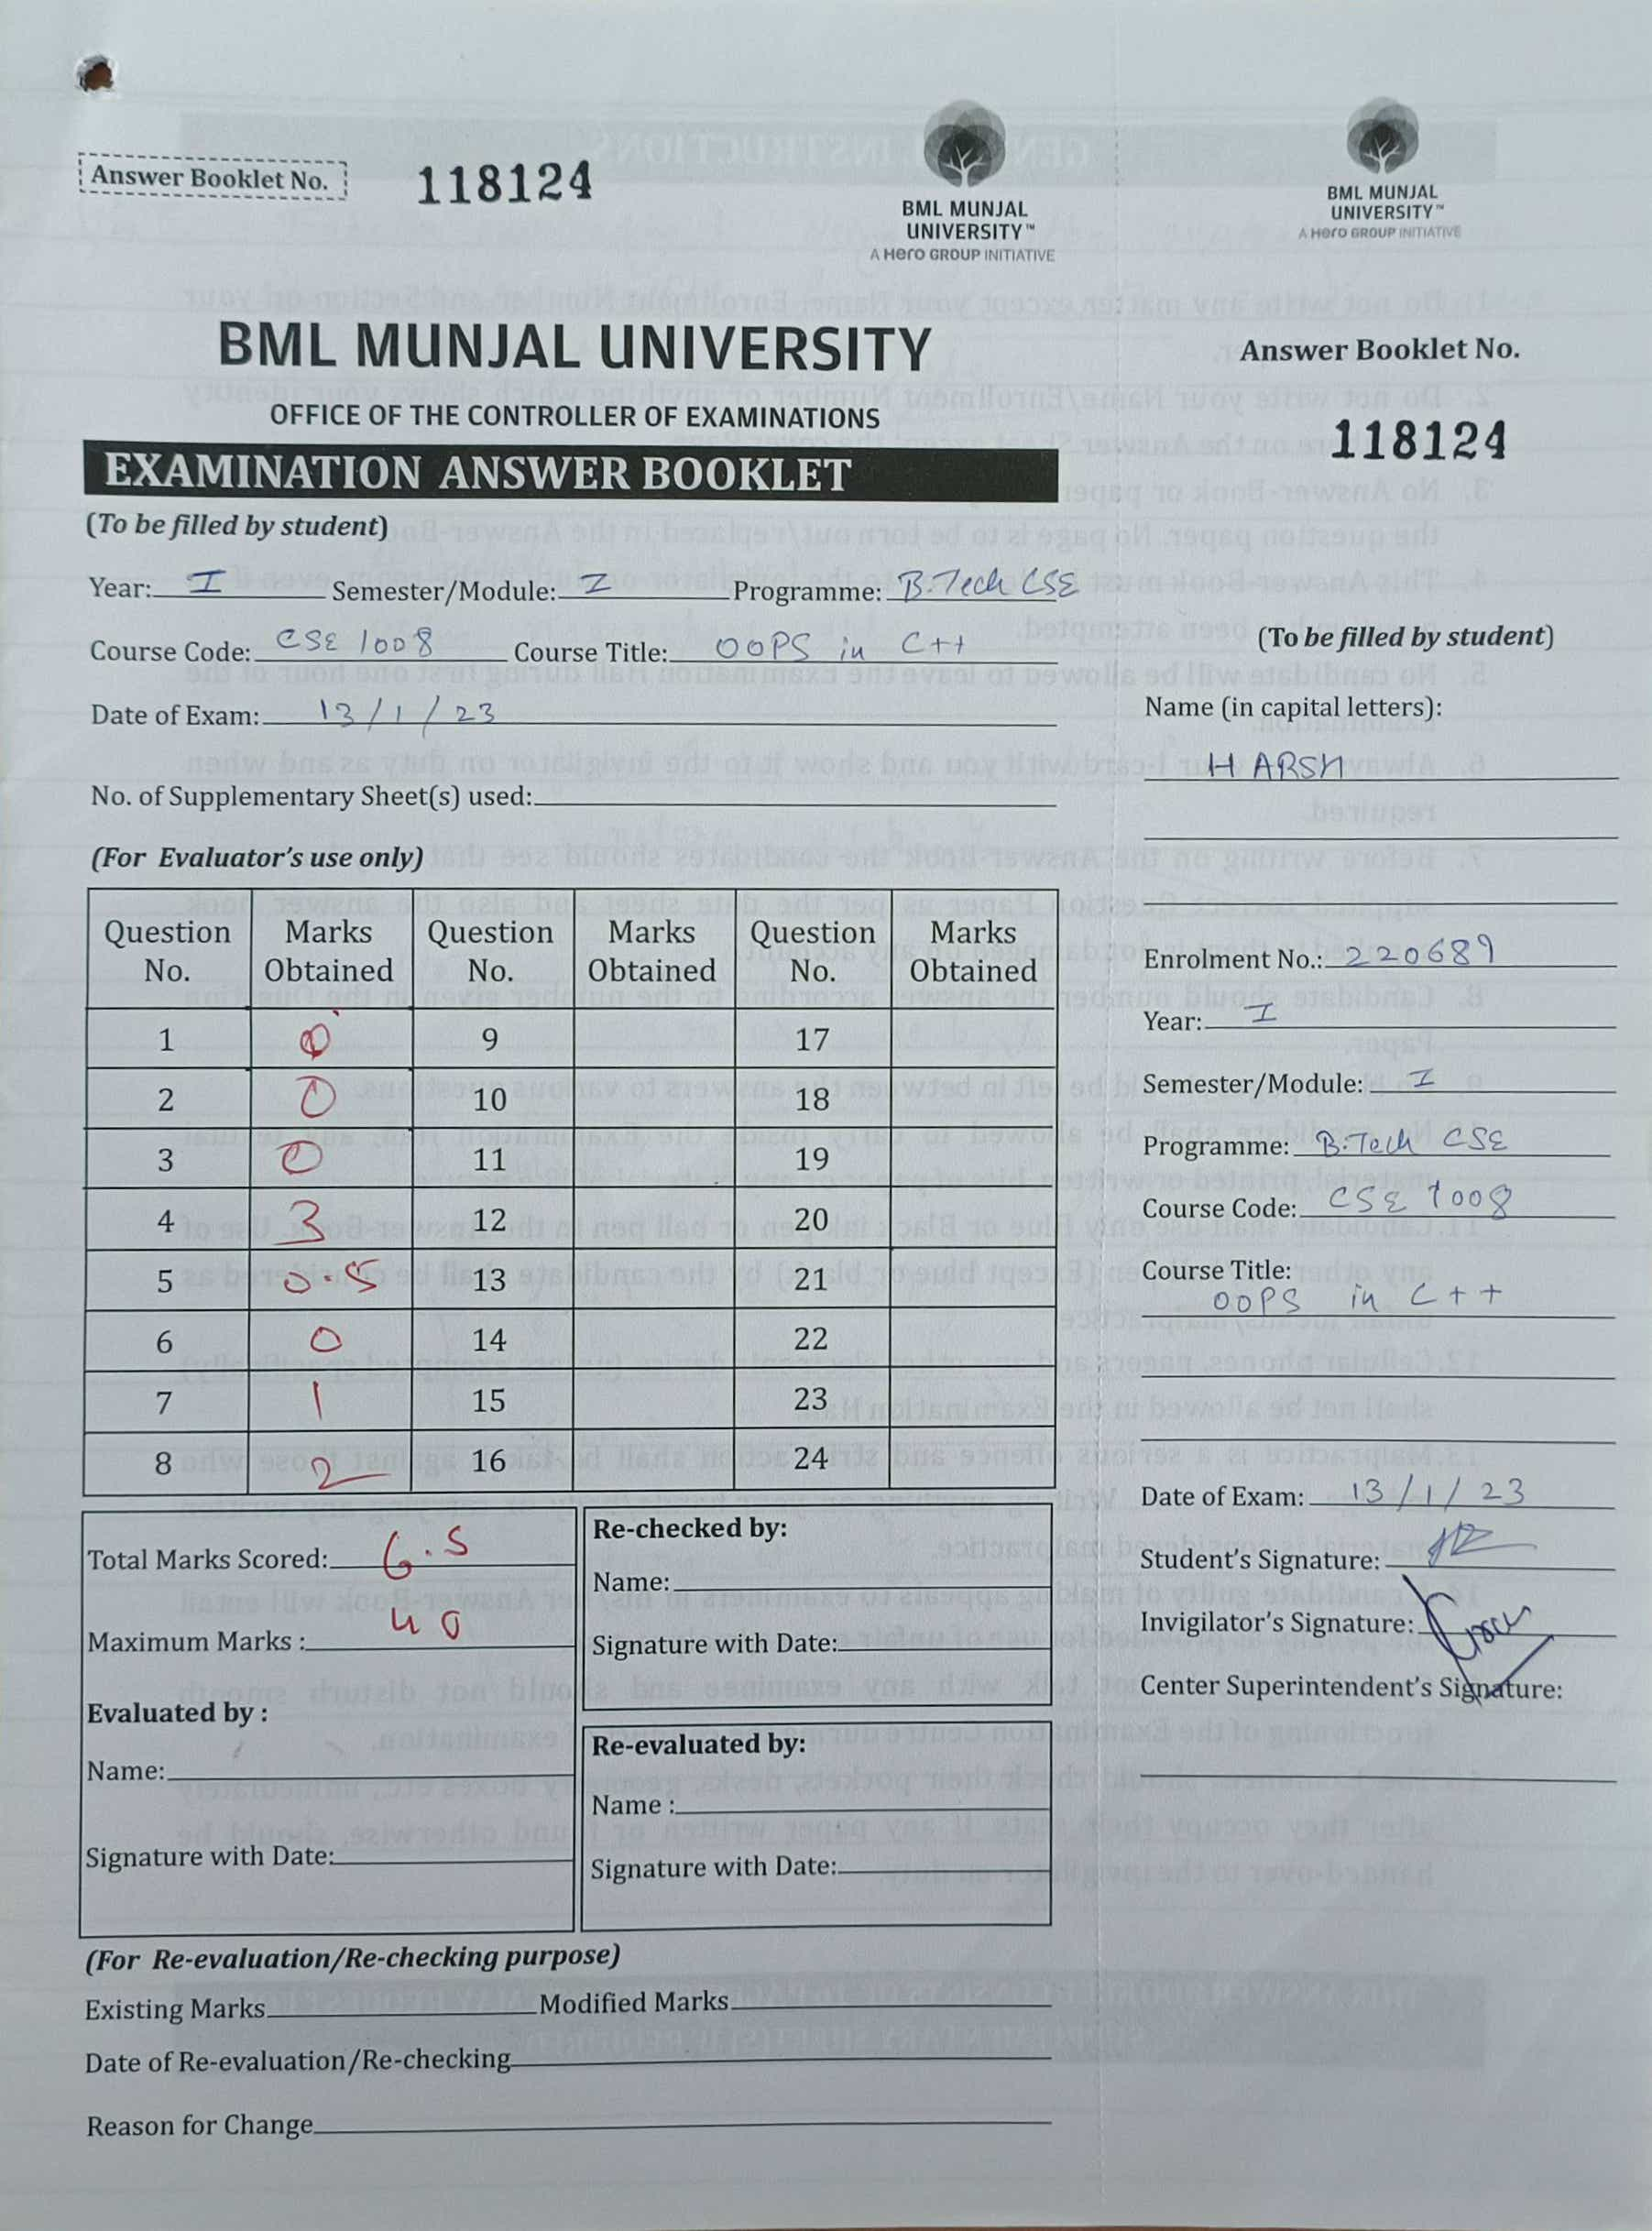 Answer Booklet No. 118124
BML MUNJAL
UNIVERSITY™
A Hero GROUP INITIATIVE
BML MUNJAL UNIVERSITY
OFFICE OF THE CONTROLLER OF EXAMINATIONS
EXAMINATION ANSWER BOOKLET
(To be filled by student)
Year: I Semester/Module: I Programme: B.Tech CSE
Course Code: CSE 1008 Course Title: OOPS in C++
Date of Exam: 13/1/23
No. of Supplementary Sheet(s) used:
(For Evaluator's use only)
Question No. Marks Obtained Question No. Marks Obtained Question No. Marks Obtained
1 9 17
2 0 10 18
3 0 11 19
4 3 12 20
5 0.5 13 21
6 0 14 22
7 1 15 23
8 2 16 24
Total Marks Scored: 6.5
Maximum Marks : 40
Evaluated by :
Name:
Signature with Date:
Re-checked by:
Name:
Signature with Date:
Re-evaluated by:
Name :
Signature with Date:
(For Re-evaluation/Re-checking purpose)
Existing Marks Modified Marks
Date of Re-evaluation/Re-checking
Reason for Change
BML MUNJAL
UNIVERSITY™
A Hero GROUP INITIATIVE
Answer Booklet No.
118124
(To be filled by student)
Name (in capital letters):
HARSH
Enrolment No.: 220689
Year: I
Semester/Module: I
Programme: B.Tech CSE
Course Code: CSE 1008
Course Title:
OOPS in C++
Date of Exam: 13/1/23
Student's Signature:
Invigilator's Signature:
Center Superintendent's Signature: